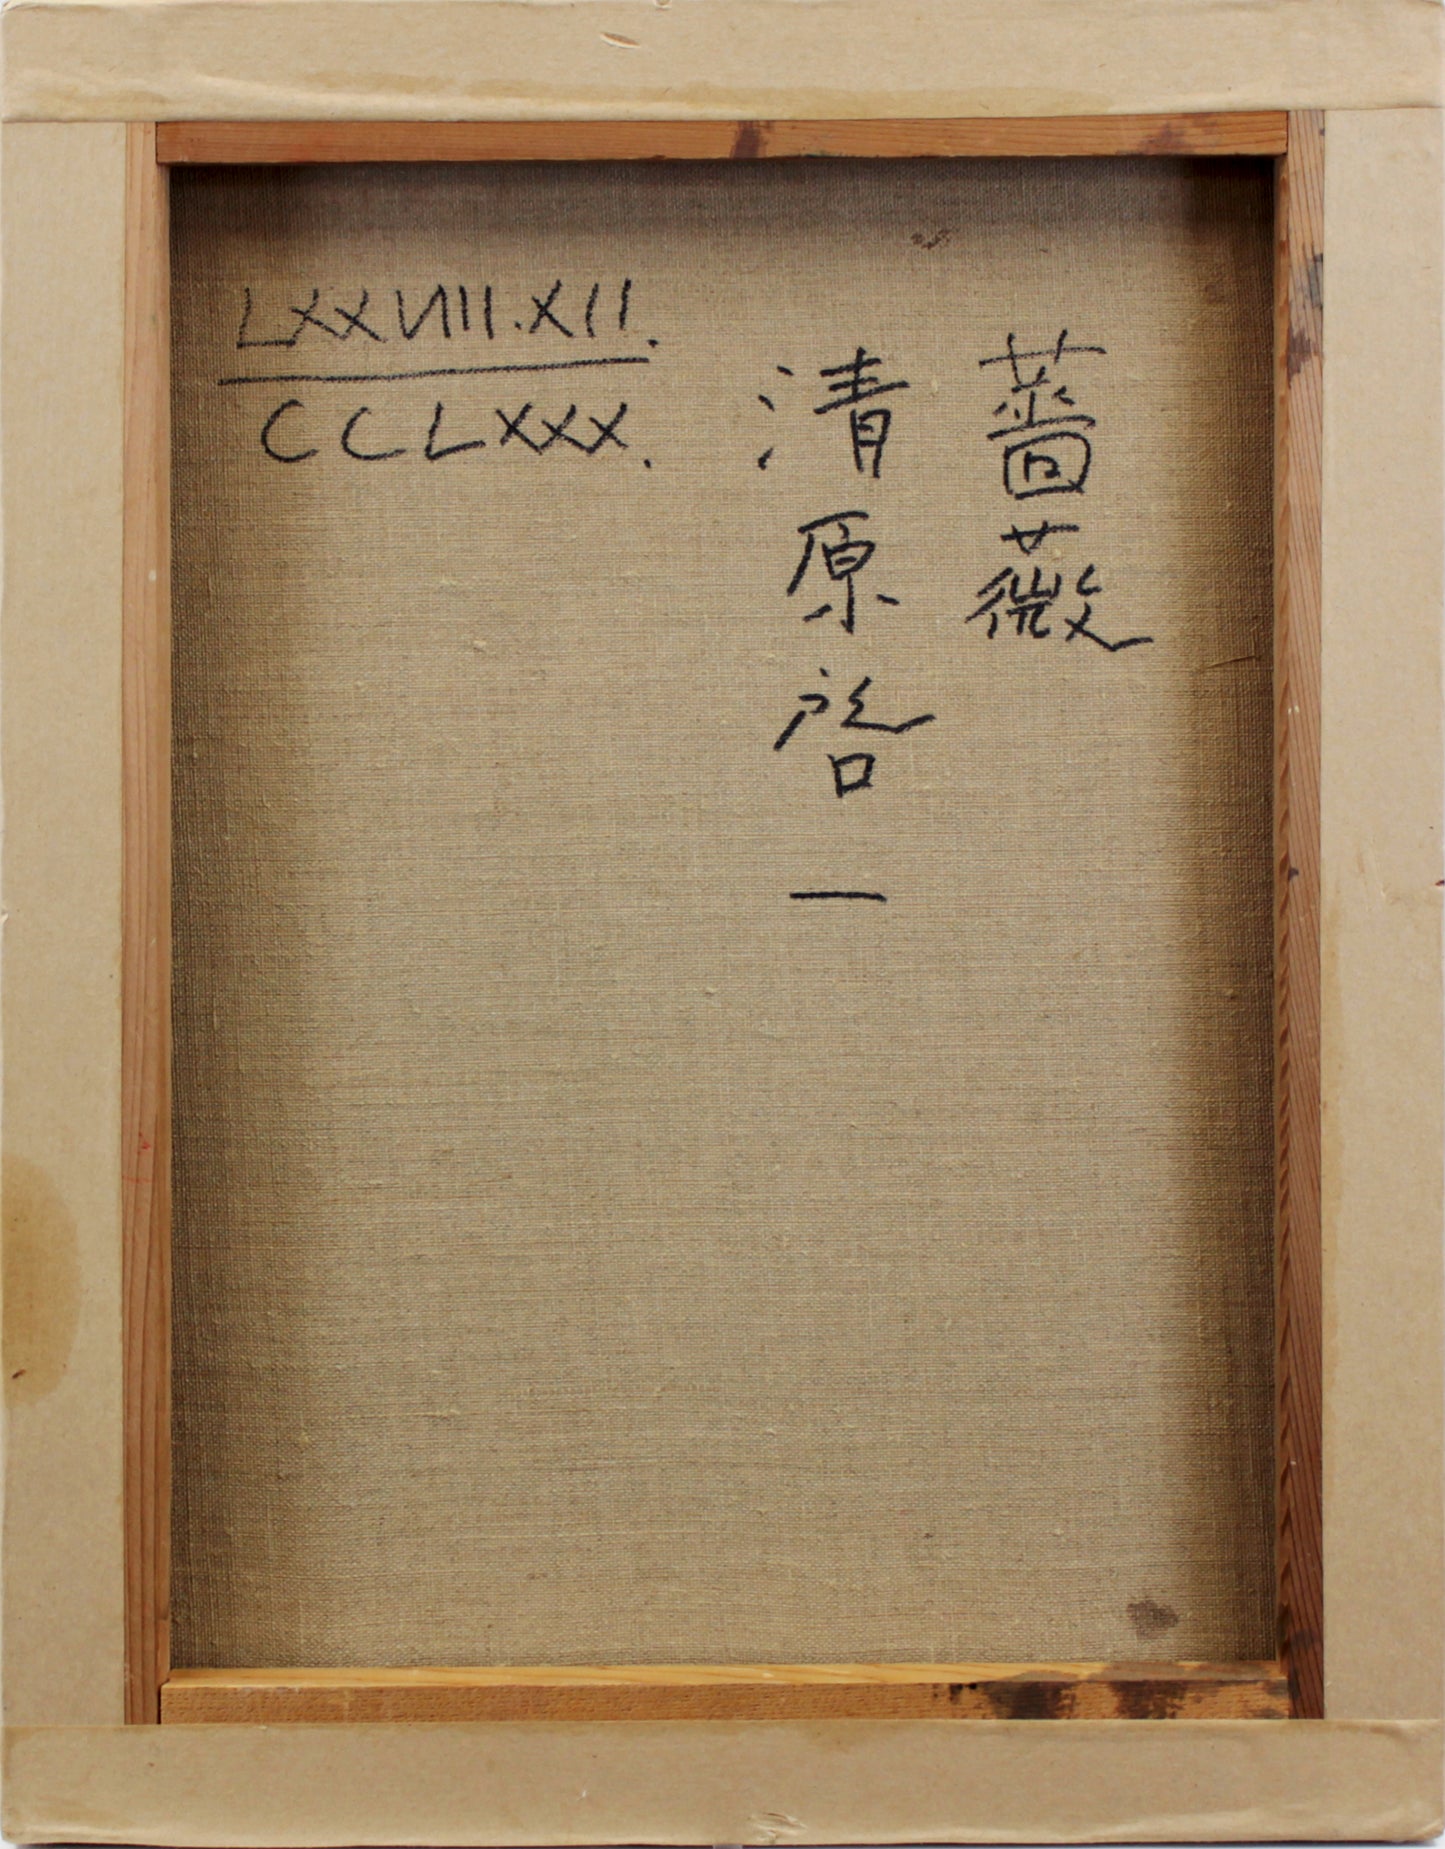 薔薇
清原啓一
LXXVIII.XII.
CCLXXX.